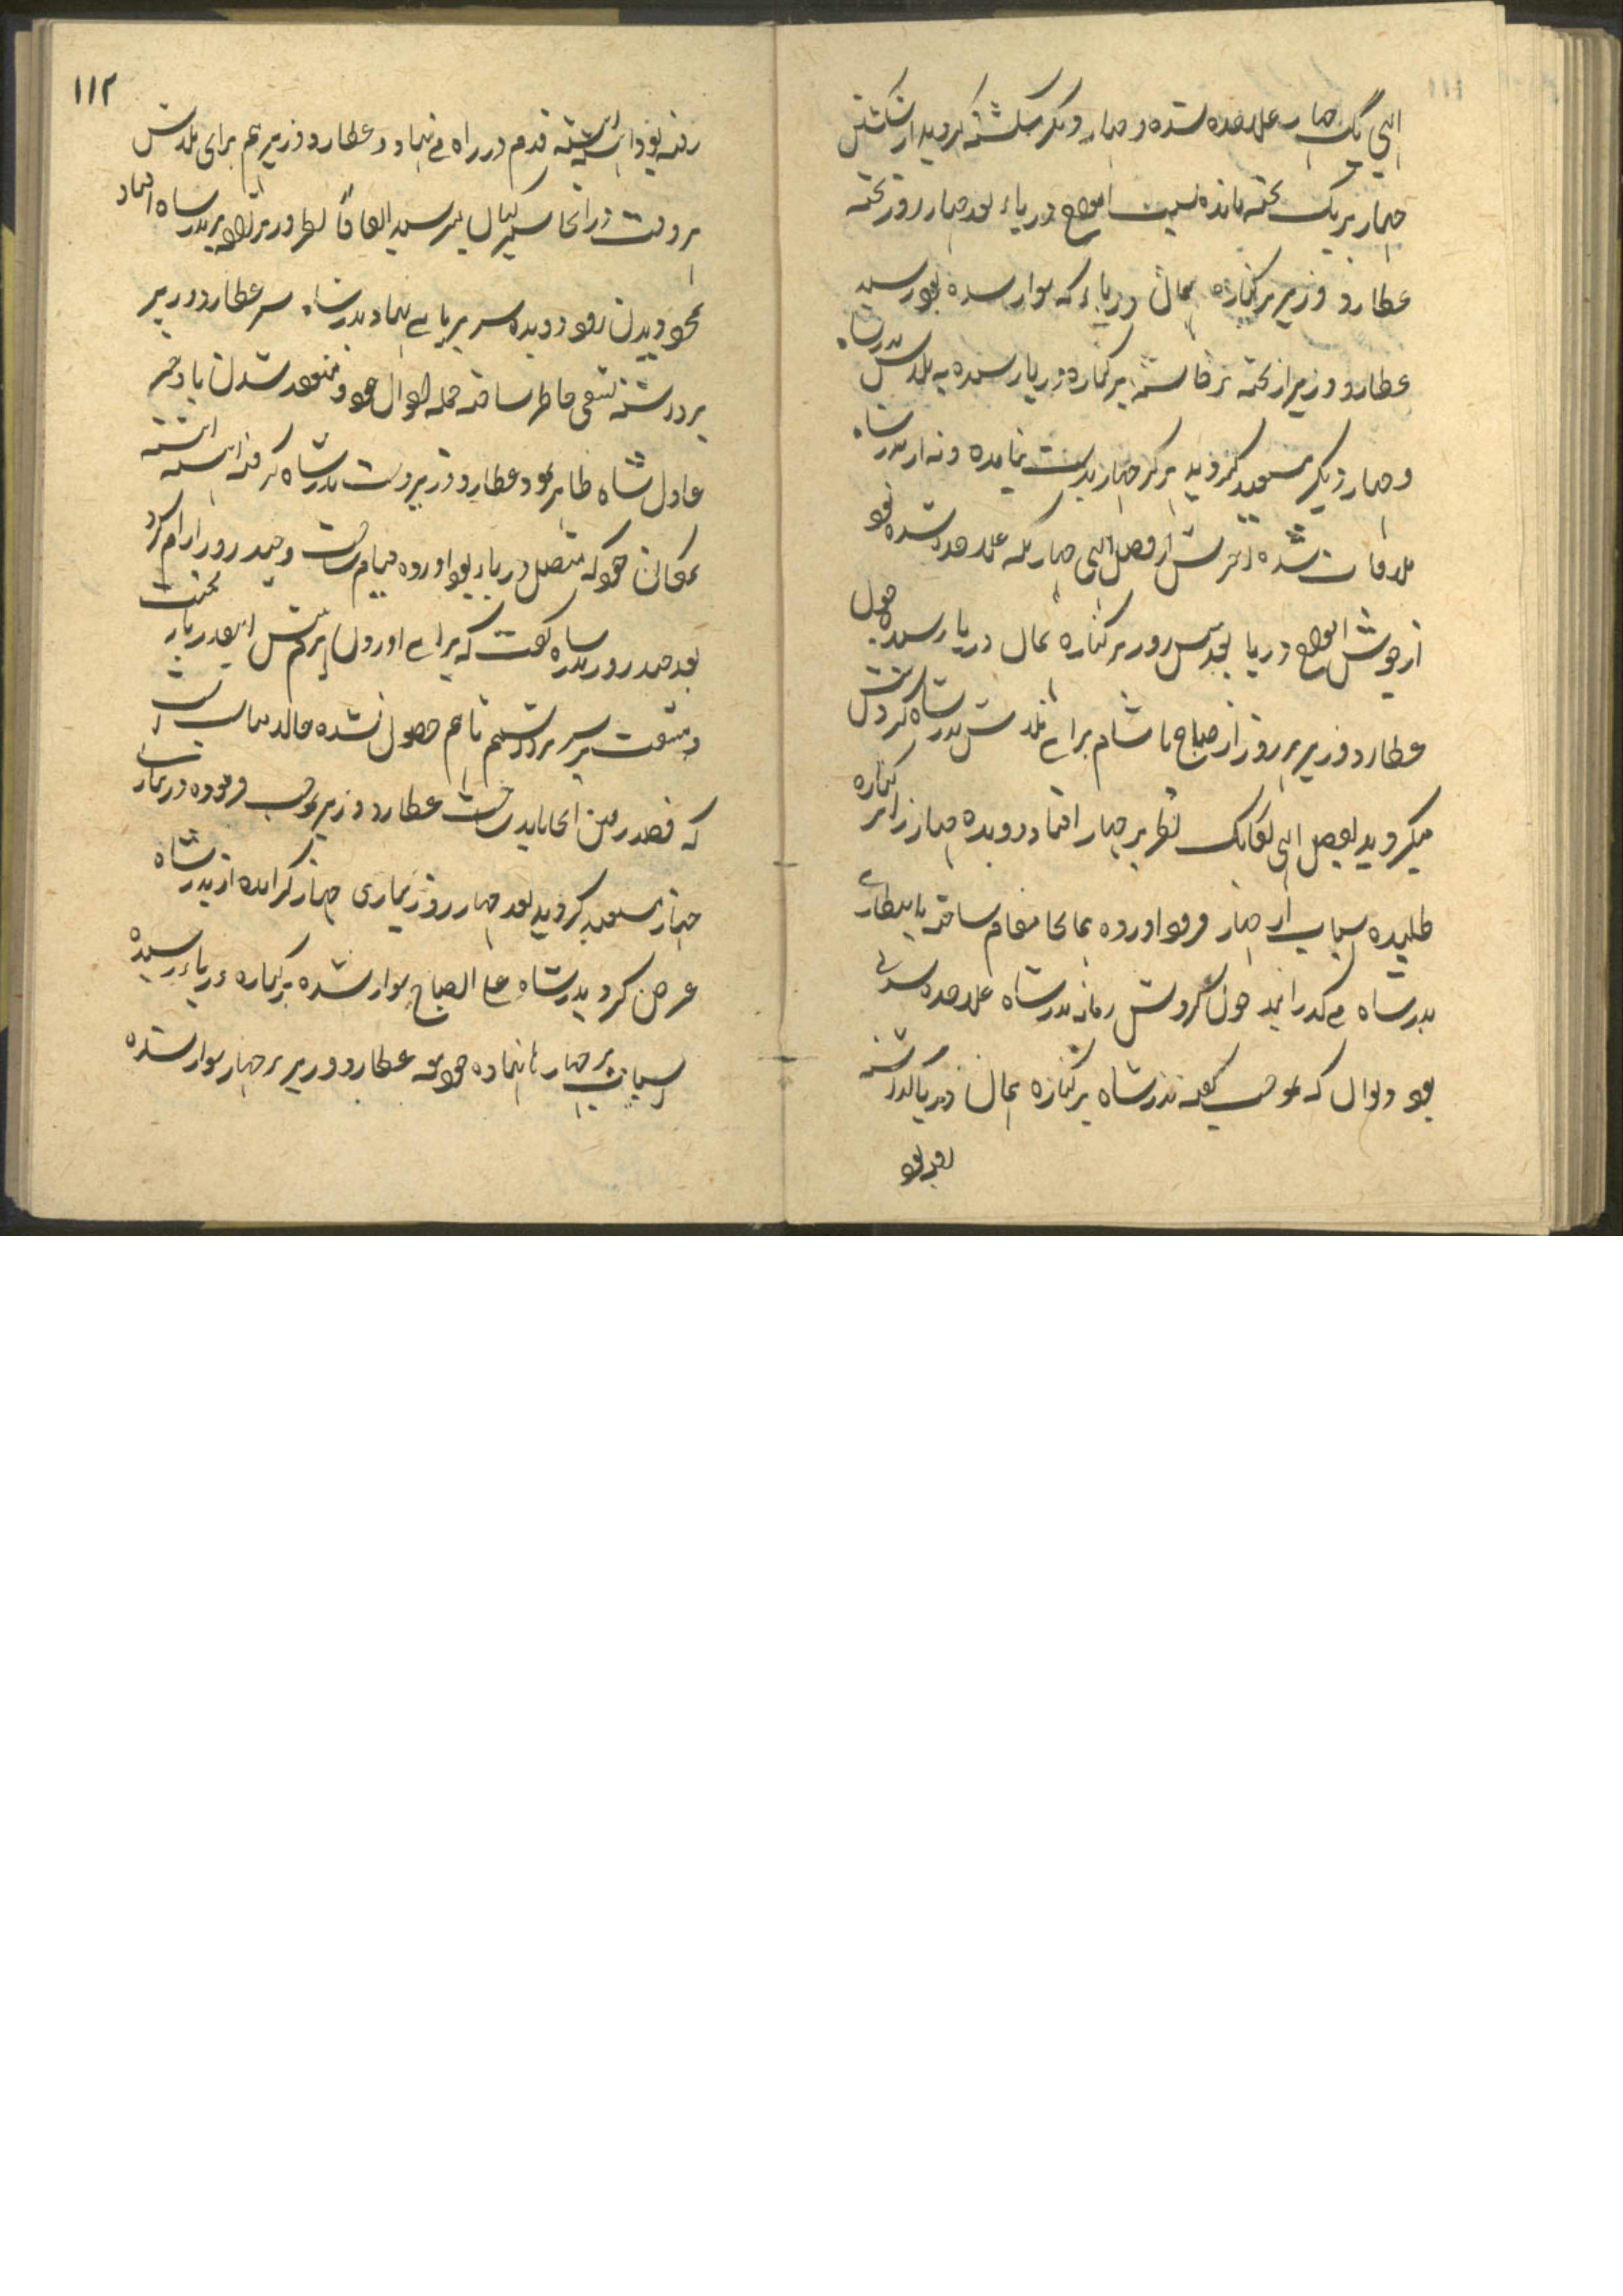 الهی یک جهاز علاحده شده و جهاز دیگر شکسته گردید از شکستن
جهاز بر یک تخته مانده بسبب امواج دریاء بعد چهار روز تخته
عطارد وزیر بر کناره همان دریاء که سوار شده بود رسید
عطارد وزیر از تخته برخاسته بر کناره دریا رسیده به تلاش بدرشاه
و جهاز دیگر مستعد گردید هرگز جهاز بدست نیامده و نه از بدرشاه
ملاقات شده آخرش از فضل الهی جهاز که علاحده شده بود
از جوش امواج دریا بعد سی روز بر کناره همان دریا رسیده چون
عطارد وزیر هر روز از صباح تا شام برای تلاش بدرشاه گردش
میگردید بفضل الهی یکایک نظر بر جهاز افتاد دویده جهاز را بر کناره
طلبیده اسباب از جهاز فرود آورده بهمانجا مقام ساخته بانتظاری
بدرشاه می گذرانید چون گردش زمانه بدرشاه علاحده شدنی
بود دیوال که بموجب گفته بدرشاه بر کناره همان دریا گذاشته
رفته بود
١١٢
رفته بود آهسته آهسته قدم در راه می نهاد و عطارد وزیر هم برای تلاش
هر وقت در آنجا سیرکنان میرسید اتفاقاً نظر وزیر بر بدرشاه افتاد
بمجرد دیدن زود دویده سر بر پای نهاد بدرشاه سر عطارد وزیر
برداشته تشفی خاطر ساخته جمله احوال خود و منعقد شدن با دختر
عادل شاه ظاهر نمود عطارد وزیر دست بدرشاه گرفته آهسته آهسته
بمکان خود که متصل دریا بود آورده قیام ساخت و چند روز آرام کرد
بعد چند روز بدرشاه گفت که برای آوردن این قدر بار محنت
و مشقت بر سر برداشتیم تا هم حصول نشده حالا مناسب است
که قصد رفتن آنجا باید ساخت عطارد وزیر بموجب فرموده در تیاری
جهاز مستعد گردید بعد چهار روز تیاری جهاز کرانیده از بدرشاه
عرض کرد بدرشاه علی الصباح سوار شده بر کناره دریاء رسیده
اسباب بر جهاز نهاده خود مع عطارد وزیر بر جهاز سوار شده